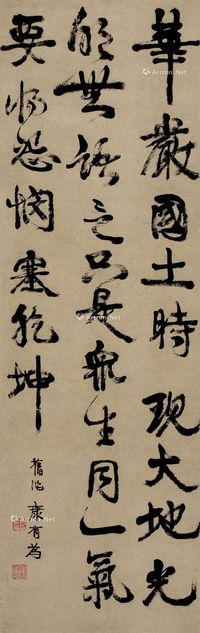 華嚴國土時現大地光
明無語言只是眾生同一氣
憫塞乾坤
舊作 康有為
Artron.Net